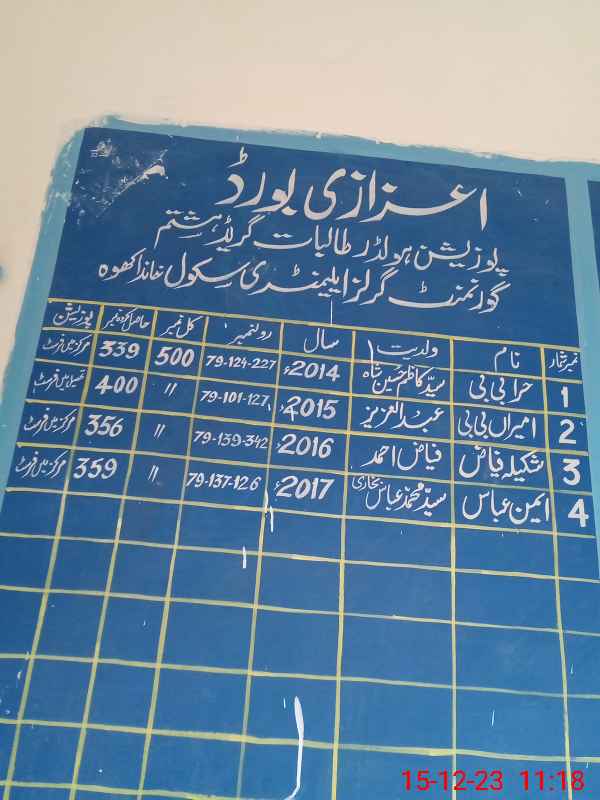 اعزازی بورڈ
پوزیشن ہولڈر طالبات گریڈ ہشتم
گورنمنٹ گرلز ایلیمنٹری سکول خاندا کھوہ
نمبر شمار نام ولدیت سال رولنمبر کل نمبر حاصل کردہ نمبر پوزیشن
1 حرا بی بی سیّد کاظم حسین شاہ 2014ء 79-124-227 500 339 مرکز میں فرسٹ
2 امیراں بی بی عبدالعزیز 2015ء 79-101-127 〃 400 تحصیل میں فرسٹ
3 شکیلہ فیاض فیاض احمد 2016ء 79-139-342 〃 356 مرکز میں فرسٹ
4 ایمن عباس سیّد محمد عباس بخاری 2017ء 79-137-126 〃 359 مرکز میں فرسٹ
15-12-23 11:18